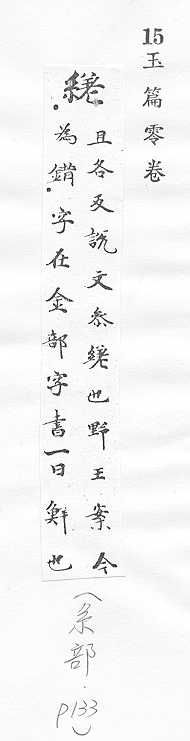 15
玉篇零卷
縒
且各反說文叅縒也野王案今
為錯字在金部字書一曰鮮也
(糸部.P133)